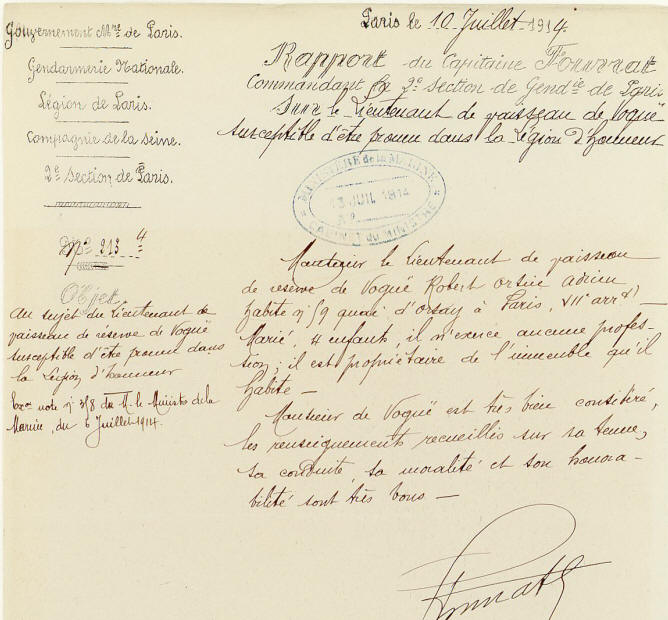 Gouvernement Mre de Paris.
Gendarmerie Nationale.
Légion de Paris.
Compagnie de la Seine.
2e Section de Paris.
No 213 4
Objet
Au sujet du Lieutenant de
vaisseau de réserve de Vogüé
susceptible d'être promu dans
la Légion d'honneur
note no 318 de M. le Ministre de la
Marine, du 6 Juillet 1914.
Paris le 10 Juillet 1914.
Rapport du Capitaine
Commandant la 2e Section de Gendie de Paris
Sur le Lieutenant de vaisseau de Vogüé
susceptible d'être promu dans la Légion d'honneur
MINISTÈRE de la MARINE
13 JUIL 1914
No
CABINET du MINISTRE
Monsieur le Lieutenant de vaisseau
de réserve de Vogüé Robert Adrien
habite no 59 quai d'orsay à Paris, VIIe arrt
Marié, 4 enfants, il n'exerce aucune profes-
sion; il est propriétaire de l'immeuble qu'il
habite —
Monsieur de Vogüé est très bien considéré,
les renseignements recueillis sur sa tenue,
sa conduite sa moralité et son honora-
bilité sont très bons —